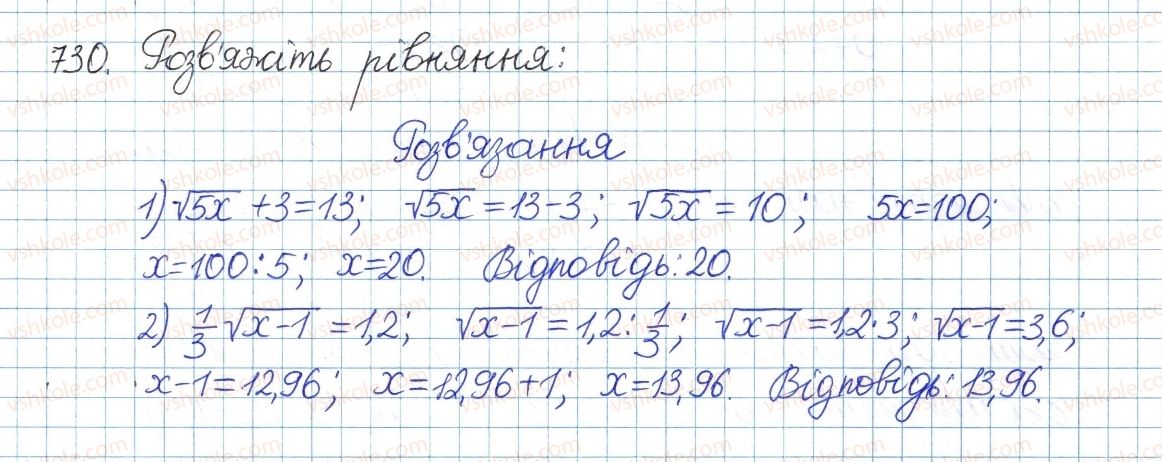 730. Розв'яжіть рівняння:
Розв'язання
1) √5x +3=13; √5x =13-3; √5x = 10; 5x=100;
x=100:5; x=20. Відповідь: 20.
2) 1/3 √x-1 =1,2; √x-1 =1,2:1/3; √x-1 =1,2·3; √x-1=3,6;
x-1=12,96; x=12,96+1; x=13,96. Відповідь: 13,96.